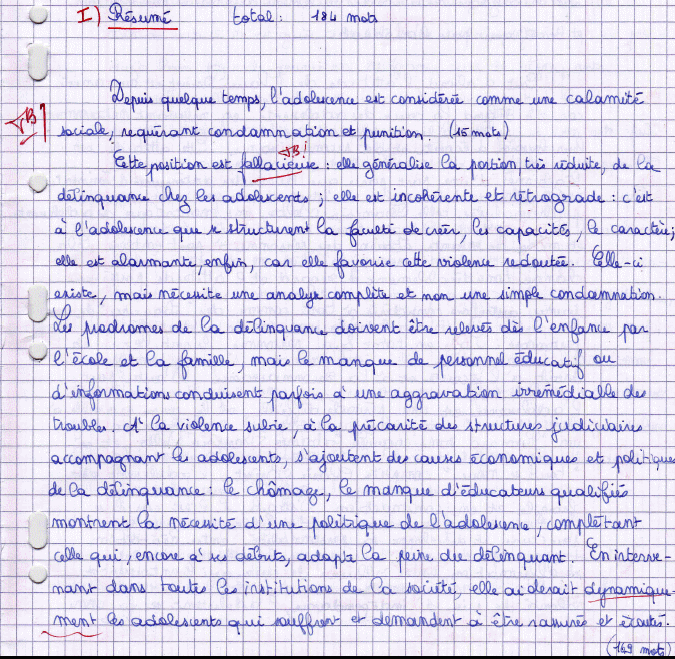 I) Résumé total : 184 mots
Depuis quelque temps, l'adolescence est considérée comme une calamité
TB sociale, requérant condamnation et punition. (15 mots)
TB !
Cette position est fallacieuse : elle généralise la portion, très réduite, de la
délinquance chez les adolescents ; elle est incohérente et rétrograde : c'est
à l'adolescence que se structurent la faculté de créer, les capacités, le caractère ;
elle est alarmante, enfin, car elle favorise cette violence redoutée. Celle-ci
existe, mais nécessite une analyse complète et non une simple condamnation.
Les prodromes de la délinquance doivent être relevés dès l'enfance par
l'école et la famille, mais le manque de personnel éducatif ou
d'informations conduisent parfois à une aggravation irrémédiable des
troubles. A la violence subie, à la précarité des structures judiciaires
accompagnant les adolescents, s'ajoutent des causes économiques et politiques
de la délinquance : le chômage, le manque d'éducateurs qualifiés
montrent la nécessité d'une politique de l'adolescence, complétant
celle qui, encore à ses débuts, adapte la peine du délinquant. En interve-
nant dans toutes les institutions de la société, elle aiderait dynamique-
ment les adolescents qui souffrent et demandent à être rassurés et écoutés.
(169 mots)